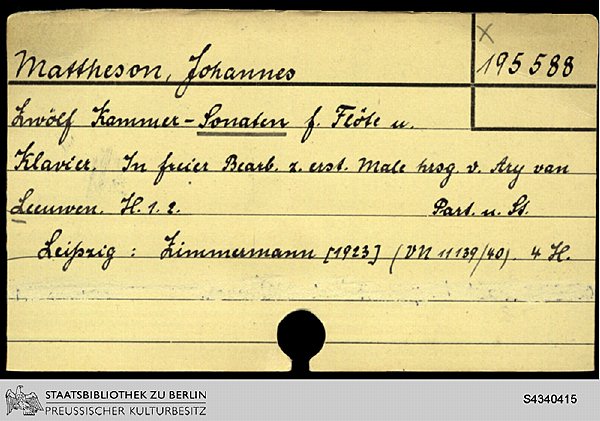 Mattheson, Johannes
x
195588
Zwölf Kammer-Sonaten f. Flöte u.
Klavier. In freier Bearb. z. erst. Male hrsg. v. Ary van
Leeuwen. H. 1. 2. Part. u. St.
Leipzig : Zimmermann [1923] (VN 11139/40). 4 H.
STAATSBIBLIOTHEK ZU BERLIN
PREUSSISCHER KULTURBESITZ
S4340415